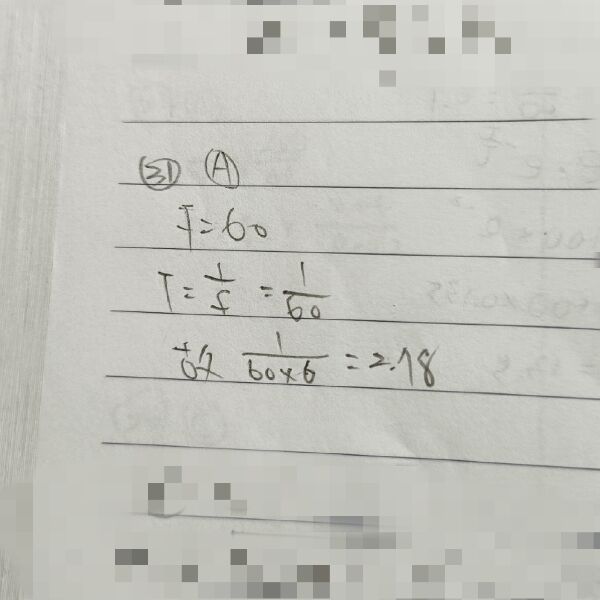 31 A
f=60
T=1/f =1/60
故 1/60×6 =2.78